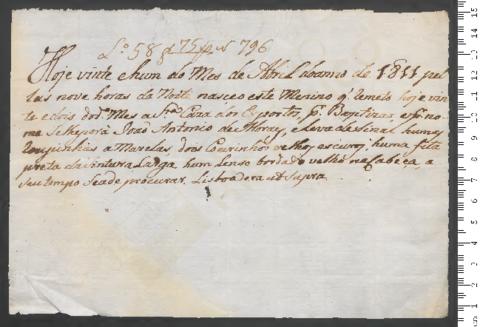 Lº 58 f 75 Nº 796
Hoje vinte e hum do Mes de Abril do anno de 1811 pel
las nove horas da Noite nasceo este Menino q̃ Remeto hoje vin
te e dois do d.º Mes a S.ta Caza dos Expostos, p.ª Baptizar e por no
me Selhe porá João Antonio de, e leva de Sinal humas
Roupinhas a Marelas, dois Coeirinhos velhos escuros, huma fita
preta da Sintura Larga, hum Lenso brodado velho na Cabeça, a
Seu tempo Seade procurar. Lisboa dera ut Supra